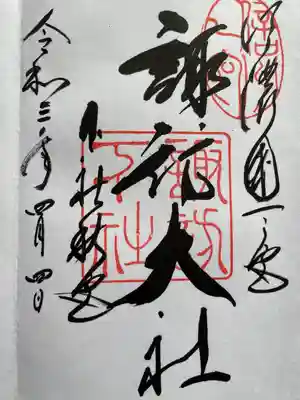 信濃國一之宮
諏訪大社
下社秋宮
令和三年四月四日
諏訪下社